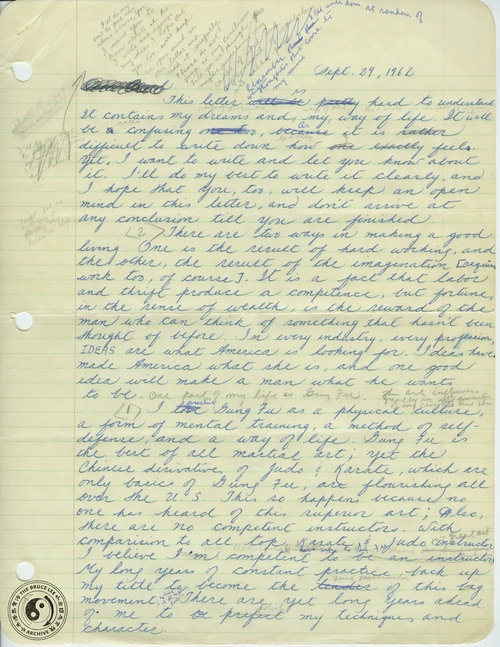 I'll write down at random of
remember
my mind
Sept. 29, 1962
This letter is hard to understand
It contains my dreams and my way of life. It will
be confusing, as it is rather
difficult to write down how one exactly feels.
Yet, I want to write and let you know about
it. I'll do my best to write it clearly, and
I hope that you, too, will keep an open
mind in this letter, and don't arrive at
any conclusion till you are finished
(2) There are two ways in making a good
living. One is the result of hard working, and
the other, the result of the imagination [requires
work too, of course]. It is a fact that labor
and thrift produce a competence, but fortune,
in the sense of wealth, is the reward of the
man who can think of something that hasn't been
thought of before. In every industry, every profession,
IDEAS are what America is looking for. Ideas have
made America what she is, and one good
idea will make a man what he wants
to be. One part of my life is Gung Fu. This art influences
(1) I Gung Fu as a physical culture,
a form of mental training, a method of self-
defense, and a way of life. Gung Fu is
the best of all martial art; yet the
Chinese derivative, of Judo & Karate, which are
only basics of Gung Fu, are flourishing all
over the U S. This so happens because no
one has heard of this superior art; also,
there are no competent instructors. With
comparison to all top Karate & Judo instructors
I believe I'm competent
My long years of constant practice back up
my title to become the leader of this
movement. There are yet long years ahead
of me to my techniques and
character.
THE BRUCE LEE
ARCHIVE